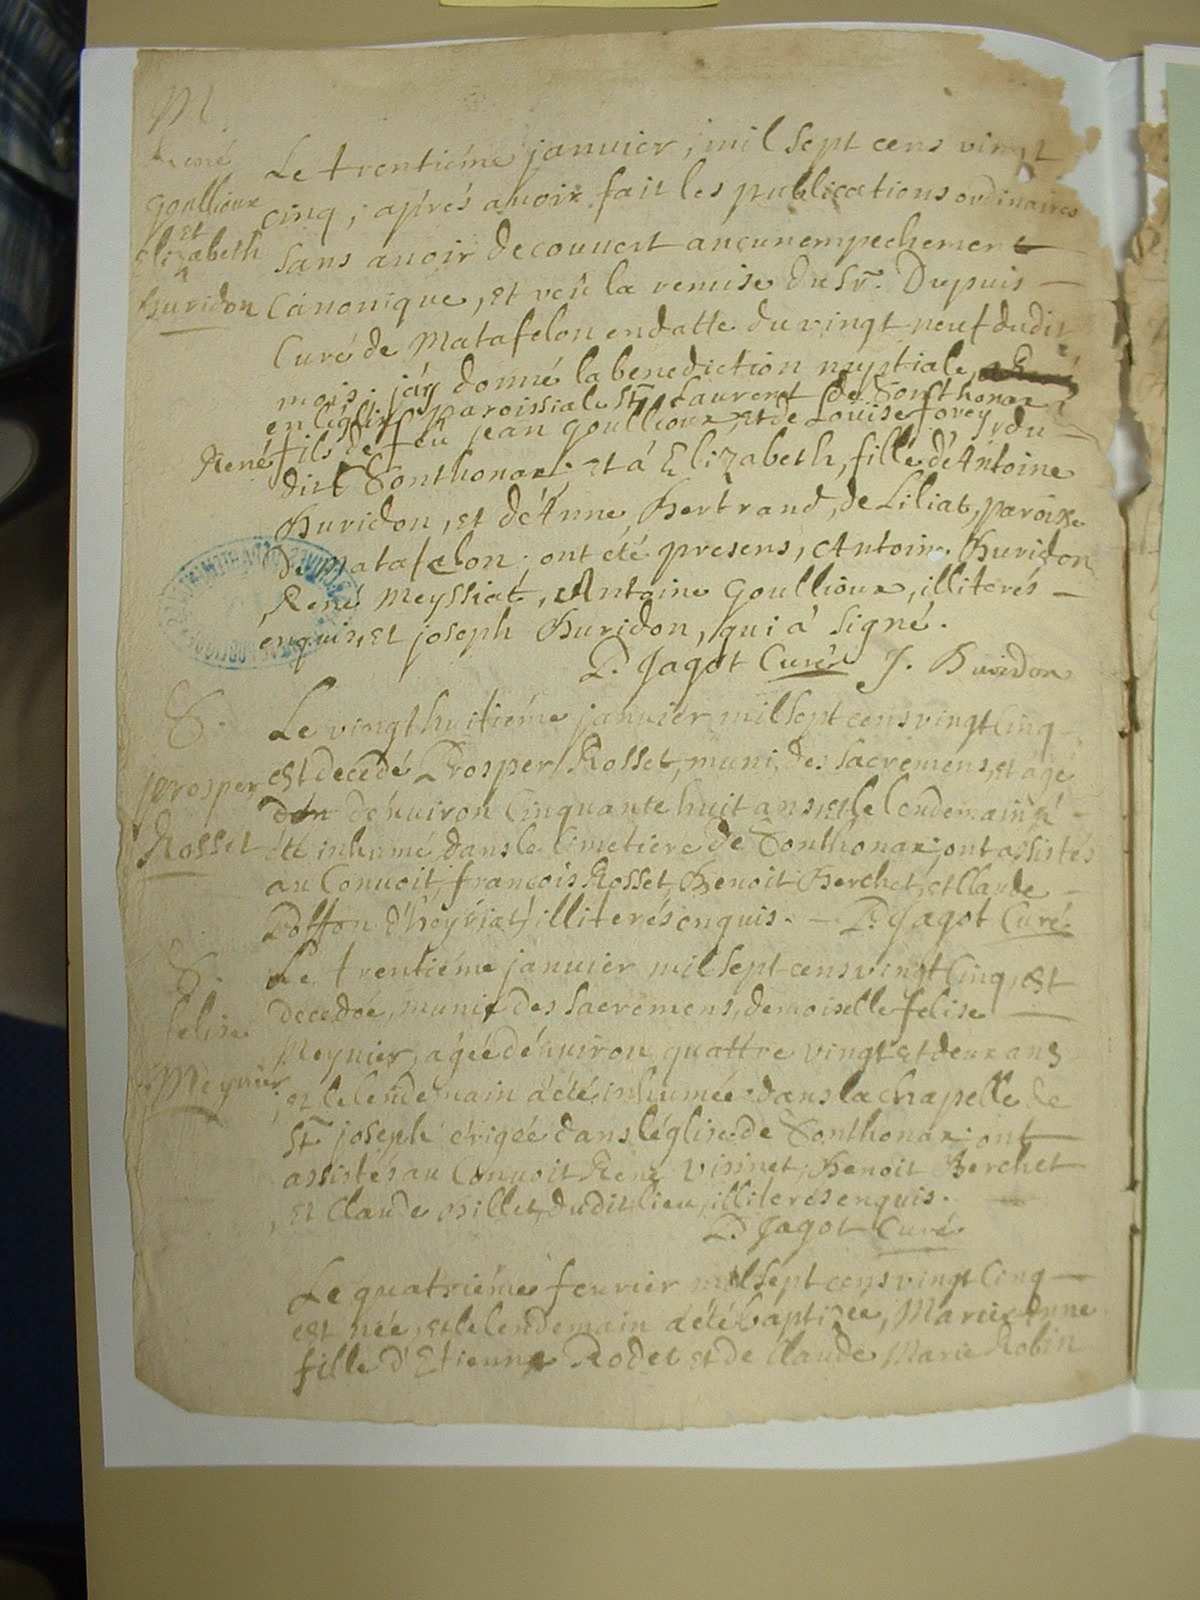 M
René
Goullioux
et
Elizabeth
Buridon
Le trentiéme janvier, mil sept cens vingt
cinq, aprés avoir fait les publications ordinaires
sans avoir decouvert aucun empechement
Canonique, et veü la remise du Sr. Dupuis
Curé de Matafelon en datte du vingt neuf dudit
mois; j'ay donné la benediction nuptiale,
en l'église paroissiale St Laurent de Sonthonax
René fils de feu jean Goullioux, et de Louise forey, du
dit Sonthonax; et á Elizabeth, fille d'Antoine
Buridon, et d'Anne Bertrand, de Liliat, paroixe
de Matafelon; ont été presens, Antoine Buridon
René Meyssiat, Antoine Goullioux, illiterés
enquis, et joseph Buridon, qui á signé.
P. Jagot Curé J. Buridon
S.
prosper
Rosset
Le vingt huitiéme janvier mil sept cens vingt cinq
est decedé Prosper Rosset, muni des sacremens, et agé
d'environ cinquante huit ans, et le lendemain á
été inhumé dans le cimetiére de Sonthonax; ont assistés
au Convoit, françois Rosset, Benoit Berchet, et Claude
d'heyriat, illiterés enquis. P. Jagot Curé.
S.
felise
Meynier
Le trentiéme janvier mil sept cens vingt cinq, est
decedée, munie des sacremens, demoiselle felise
Meynier, agée d'environ quattre vingt et deux ans
, et le lendemain á été inhumée dans la chapelle de
St joseph érigée dans l'église de Sonthonax; ont
assistés au Convoit René Visinet, Benoit Berchet
, et Claude Billet, dudit lieu, illiterés enquis.
P. Jagot Curé
Le quatriéme fevrier mil sept cens vingt cinq
est née, et le lendemain á été baptizée, Marie Anne
fille d'Etienne Rodet et de Claude Marie Robin